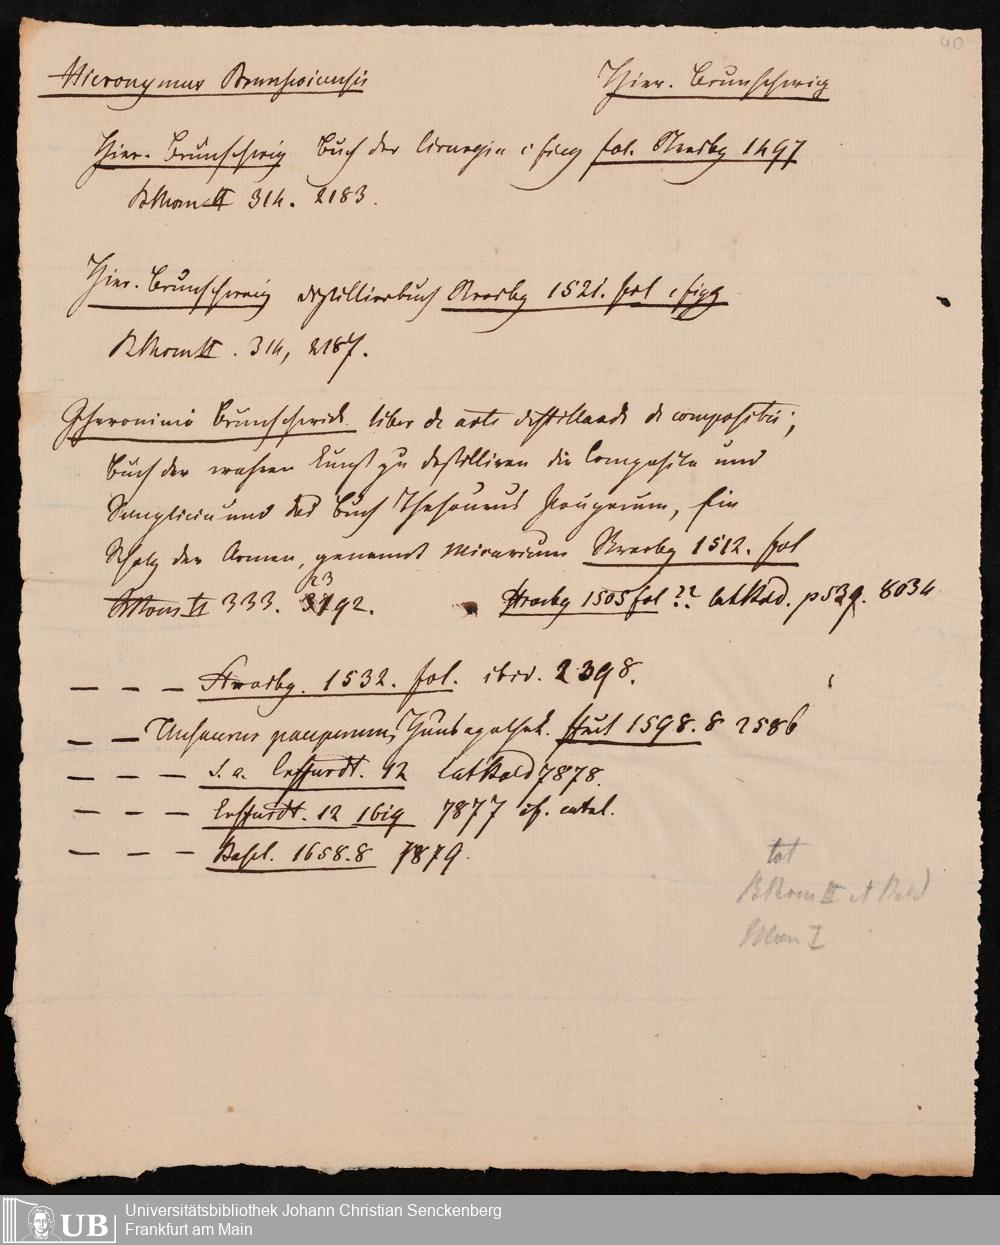 40
Hieronymus Brunsvicensis
Hier. Brunschwig
Hier. Brunschwig Buch der Cirurgia c figg fol. Strasbg 1497
BRom II 314. 2183.
Hier. Brunschwig destillierbuch Strasbg 1521. fol c figg
BRom II. 314, 2187.
Jheronimi Brunschwick liber de arte distillandi de compositis;
Buch der wahren Kunst zu destilliren die Composita und
Simplicia und das Buch Thesaurus Pauperum, Ein
Schatz der Armen, genannt Micarium Strasbg 1512. fol
23
II 333. 92.
Strasbg 1505 fol ?? Cat Bald. p 539. 8034
— — — Strasbg. 1532. fol. ibid. 2398.
— — Thesaurus pauperum, Hausapothek. 1598. 8 2586
— — — s. a. Erffurdt. 12 Cat Bald 7878.
— — — Erffurdt. 12 7877 cf. catal.
— — — Basel. 1658. 8 7879.
tot
BRom II et Bald
BRom I
UB
Universitätsbibliothek Johann Christian Senckenberg
Frankfurt am Main